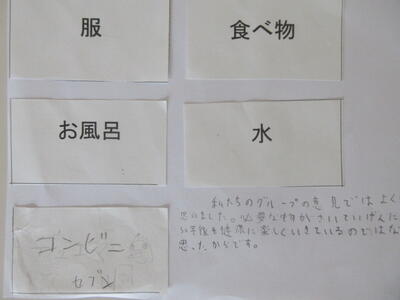 服
食べ物
お風呂
水
私たちのグループの意見ではよく
思いました。必要な物がさいていげんに
50年後も健康に楽しくいきているのではな
思ったからです。
コンビニ